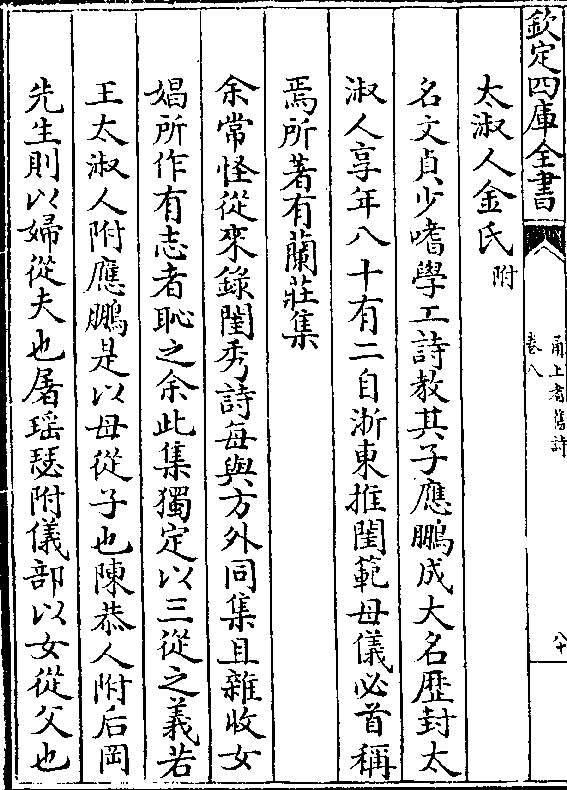 欽定四庫全書
甬上耆舊詩
卷八
八十
太淑人金氏附
名文貞少嗜學工詩教其子應鵬成大名歴封太
淑人享年八十有二自浙東推閨範母儀必首稱
焉所著有蘭莊集
余常怪從來錄閨秀詩每與方外同集且雜收女
娼所作有志者恥之余此集獨定以三從之義若
王太淑人附應鵬是以母從子也陳恭人附后岡
先生則以婦從夫也屠瑶瑟附儀部以女從父也